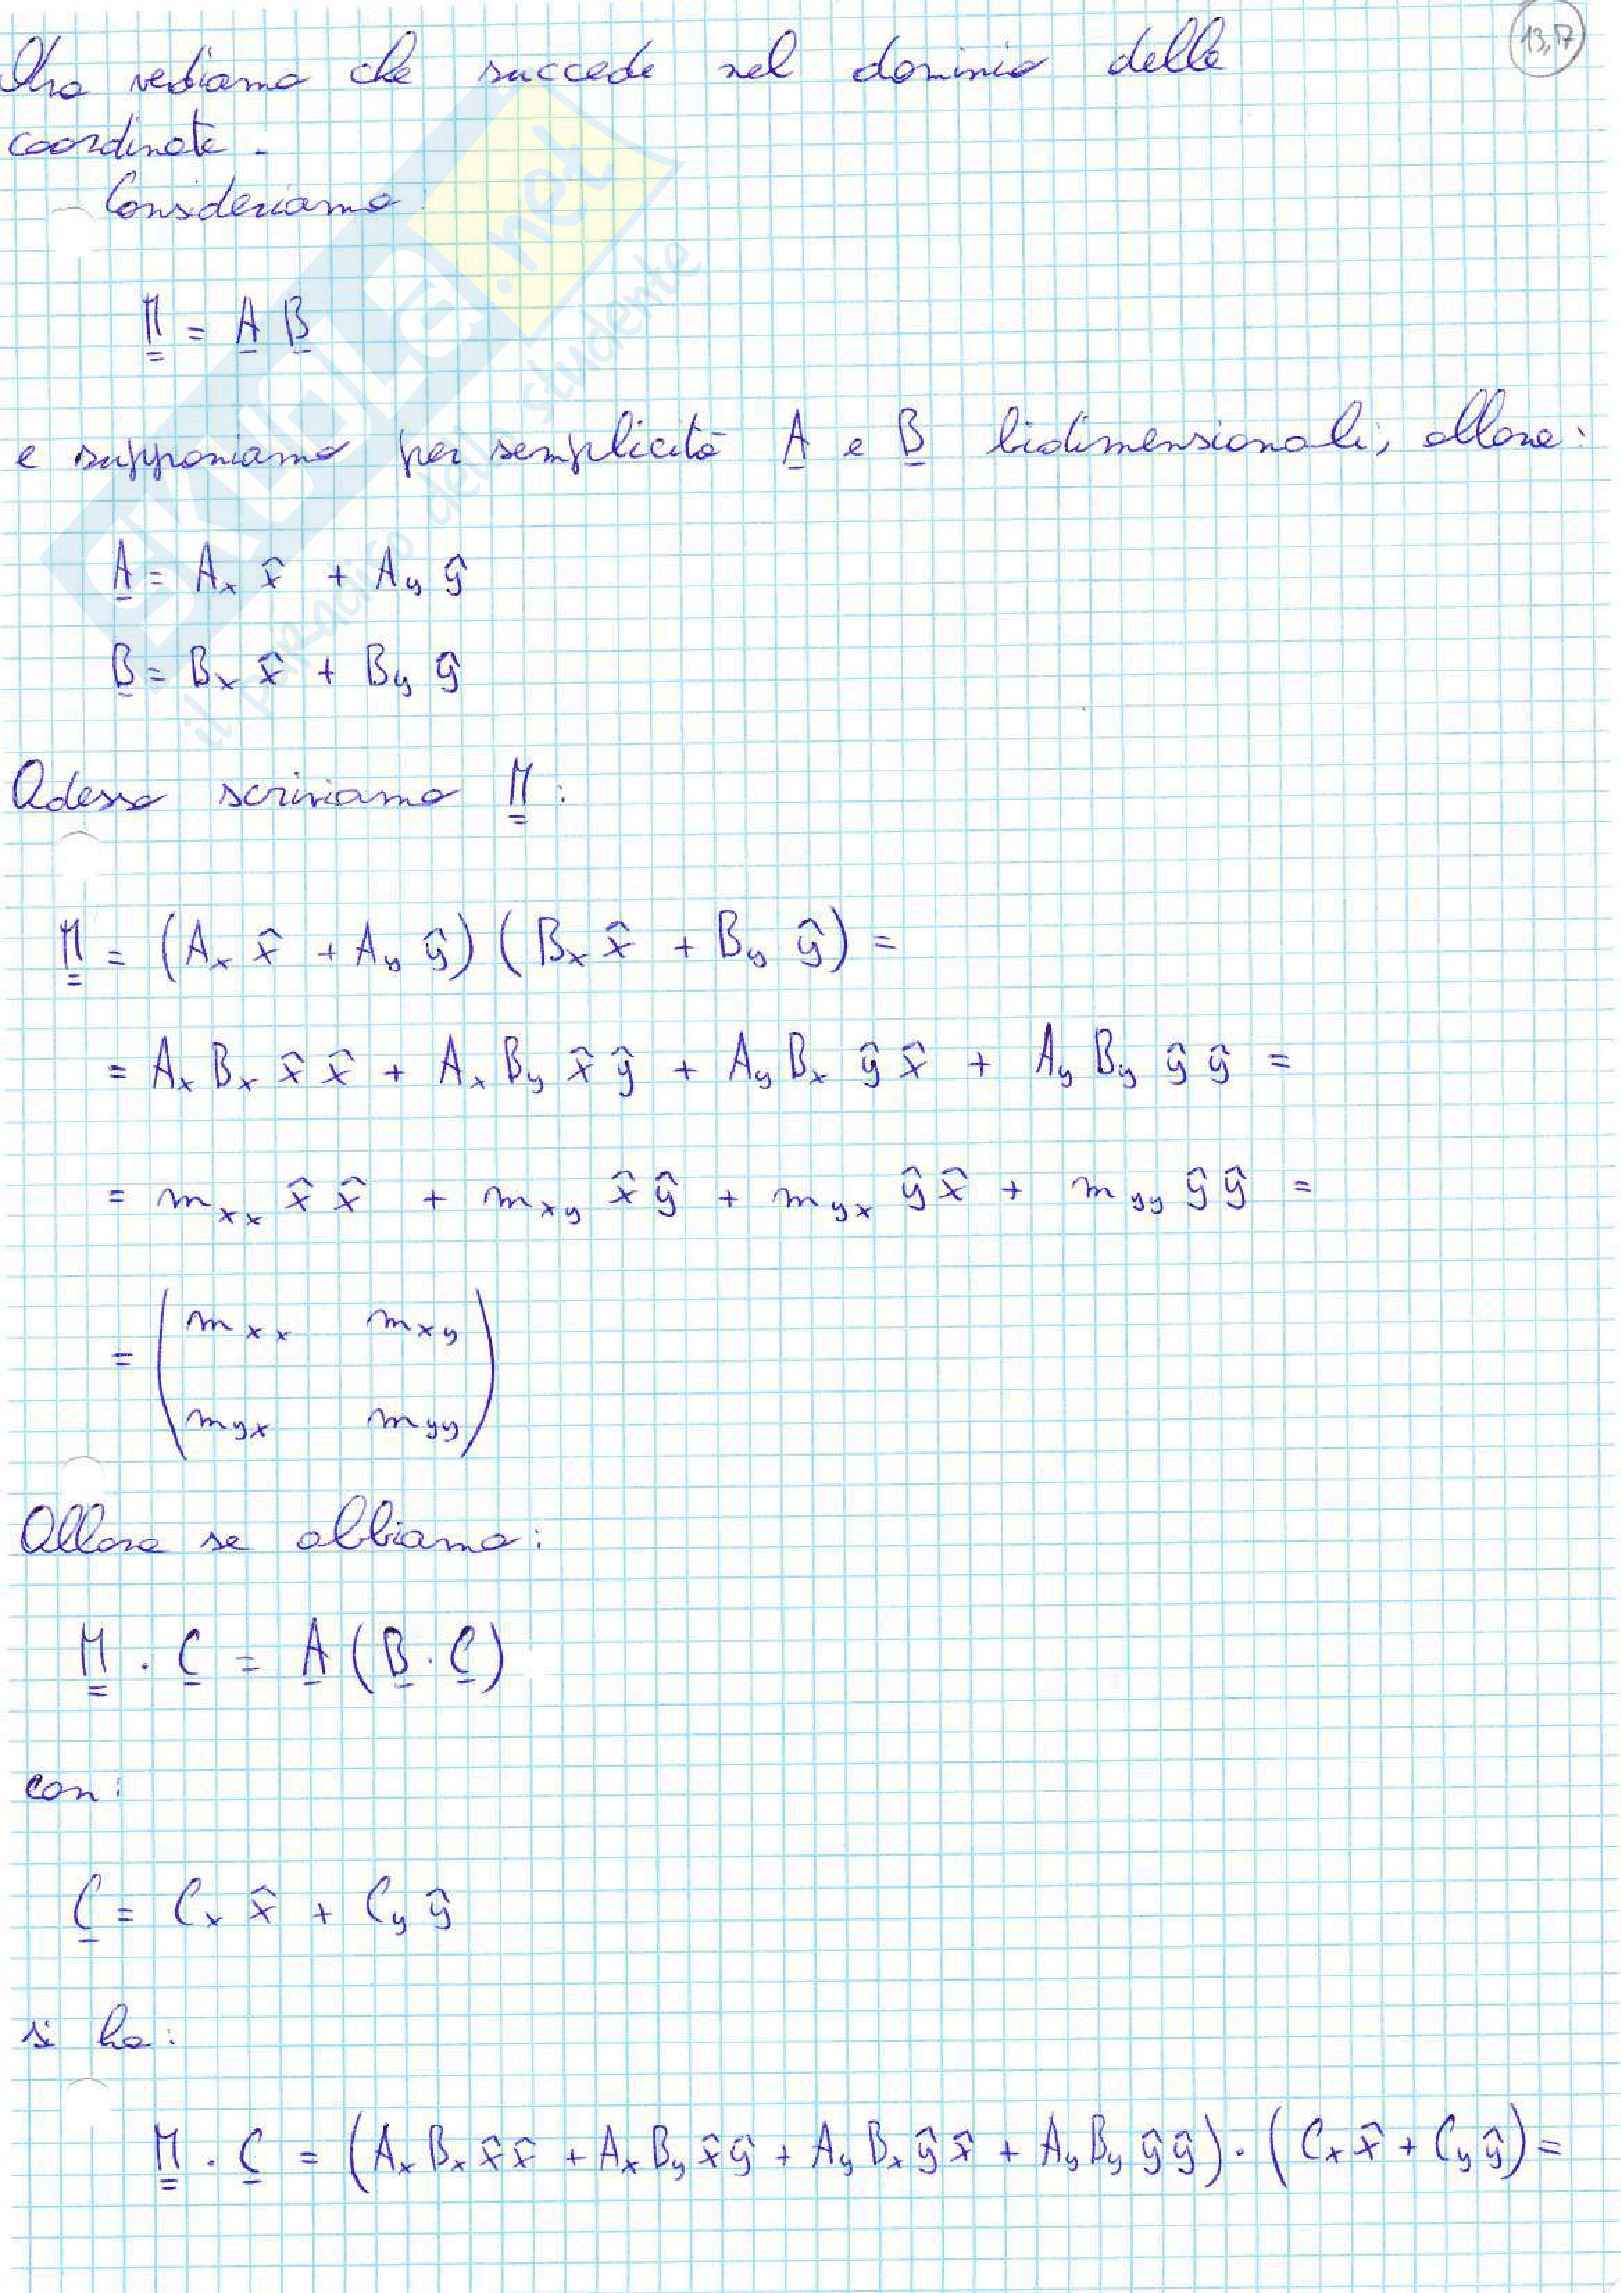 13,17
Ora vediamo che succede nel dominio delle
coordinate.
Consideriamo:
M = A B
e supponiamo per semplicità A e B bidimensionali; allora:
A = Aₓ x̂ + A_y ŷ
B = Bₓ x̂ + B_y ŷ
Adesso scriviamo M:
M = (Aₓ x̂ + A_y ŷ) (Bₓ x̂ + B_y ŷ) =
= Aₓ Bₓ x̂ x̂ + Aₓ B_y x̂ ŷ + A_y Bₓ ŷ x̂ + A_y B_y ŷ ŷ =
= m_xx x̂ x̂ + m_xy x̂ ŷ + m_yx ŷ x̂ + m_yy ŷ ŷ =
= ( m_xx m_xy
m_yx m_yy )
Allora se abbiamo:
M · C = A (B · C)
con:
C = Cₓ x̂ + C_y ŷ
si ha:
M · C = (Aₓ Bₓ x̂ x̂ + Aₓ B_y x̂ ŷ + A_y Bₓ ŷ x̂ + A_y B_y ŷ ŷ) · (Cₓ x̂ + C_y ŷ) =
SKUOLA.net
il paradiso dello studente